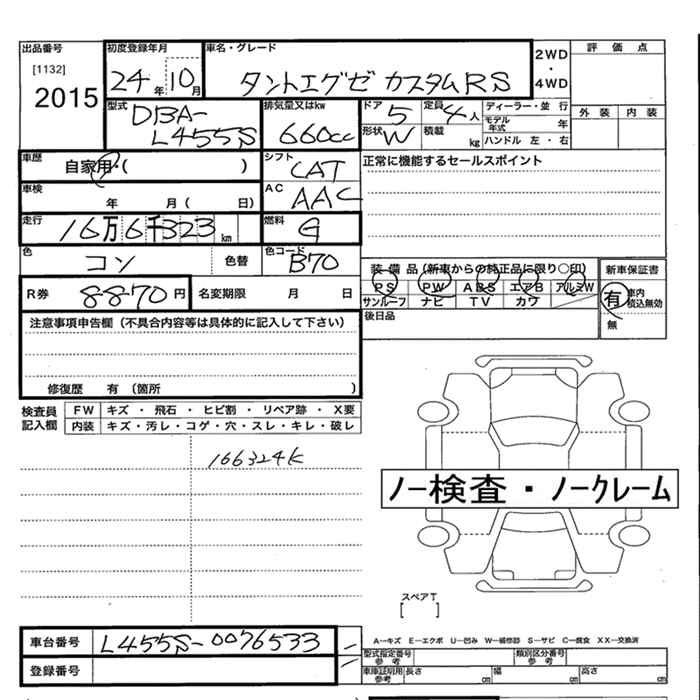 出品番号 初度登録年月 車名・グレード 2WD・4WD 評価点
[1132]
2015 24年 10月 タントエグゼ カスタムRS 外装 内装
型式 DBA-L455S 排気量又はkw 660cc ドア 5 定員 4人 ディーラー・並行
形状 W 積載 kg モデル年式 年
ハンドル 左・右
車歴 自家用・( ) シフト CAT 正常に機能するセールスポイント
車検 年 月( 日) AC AAC
走行 16万6千323km 燃料 G
色 コン 色替 色コード B70 装備品(新車からの純正品に限り○印) 新車保証書
PS PW ABS エアB アルミW 有 車内積込無効
R券 8870円 名変期限 月 日 サンルーフ ナビ TV カワ 無
後日品
注意事項申告欄(不具合内容等は具体的に記入して下さい)
修復歴 有 (箇所 )
検査員記入欄 FW キズ・飛石・ヒビ割・リペア跡・X要
内装 キズ・汚レ・コゲ・穴・スレ・キレ・破レ
166324K
ノー検査・ノークレーム
スペアT
[ ]
車台番号 L455S-0076533
登録番号
A−キズ E−エクボ U−凹み W−補修跡 S−サビ C−腐食 XX−交換済
型式指定番号 参考 類別区分番号 参考
車庫証明用 参考 長さ cm 幅 cm 高さ cm